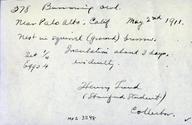 378 Burrowing owl.
Near Palo Alto, Calif May 2nd 1901.
Nest in squirrel (ground) burrow.
Set 1/4 Incubation about 3 days.
Eggs 4 evidently
Henry
(Stanford Student)
Collector.